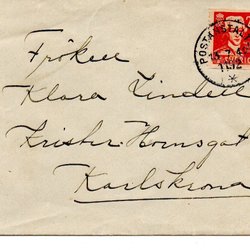 Fröken
Klara Lindell
Krister Hornsgat
Karlskrona
POSTANSTALT